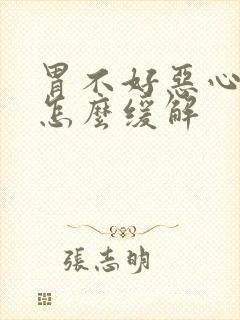 胃不好惡心
怎麼缓解
張志明